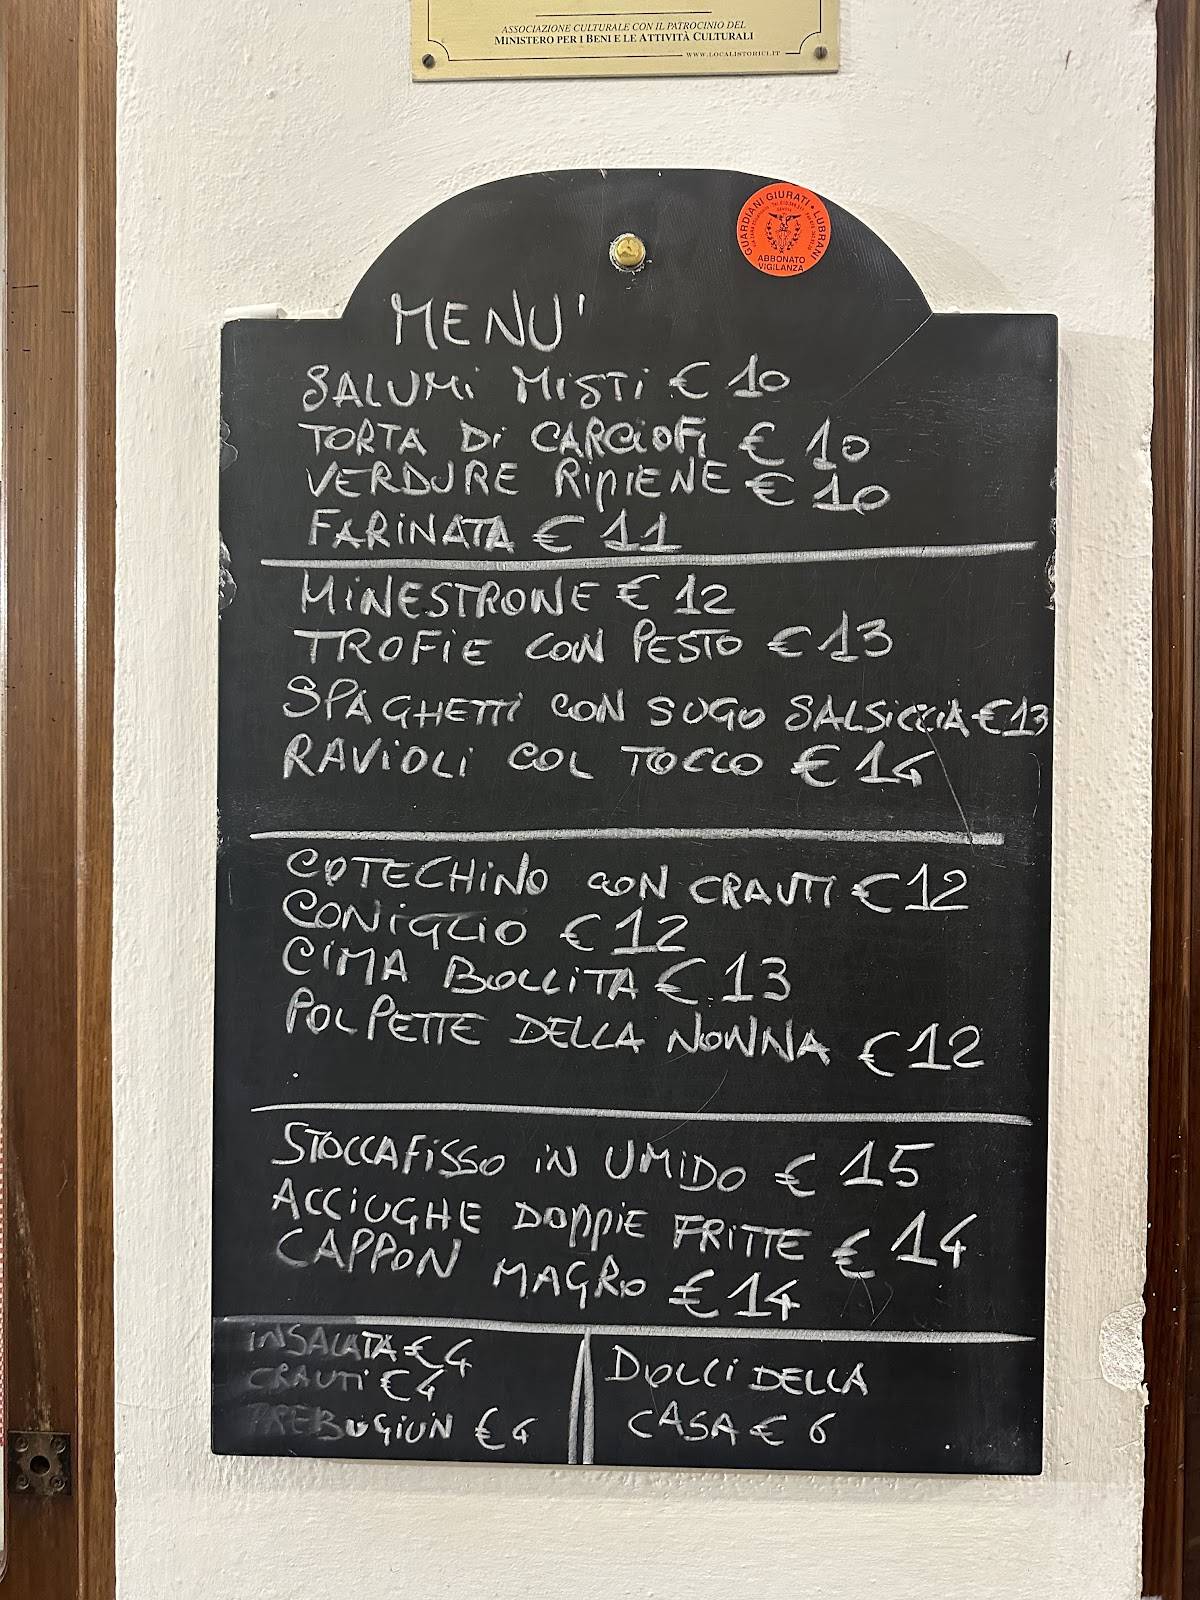 ASSOCIAZIONE CULTURALE CON IL PATROCINIO DEL
MINISTERO PER I BENI E LE ATTIVITÀ CULTURALI
WWW.LOCALISTORICI.IT
GUARDIANI GIURATI • LUBRANI
ABBONATO
VIGILANZA
MENU'
SALUMI MISTI € 10
TORTA DI CARCIOFI € 10
VERDURE RIPIENE € 10
FARINATA € 11
MINESTRONE € 12
TROFIE CON PESTO € 13
SPAGHETTI CON SUGO SALSICCIA € 13
RAVIOLI COL TOCCO € 14
COTECHINO CON CRAUTI € 12
CONIGLIO € 12
CIMA BOLLITA € 13
POLPETTE DELLA NONNA € 12
STOCCAFISSO IN UMIDO € 15
ACCIUGHE DOPPIE FRITTE € 14
CAPPON MAGRO € 14
INSALATA € 4
CRAUTI € 4
PREBUGIUN € 4
DOLCI DELLA
CASA € 6